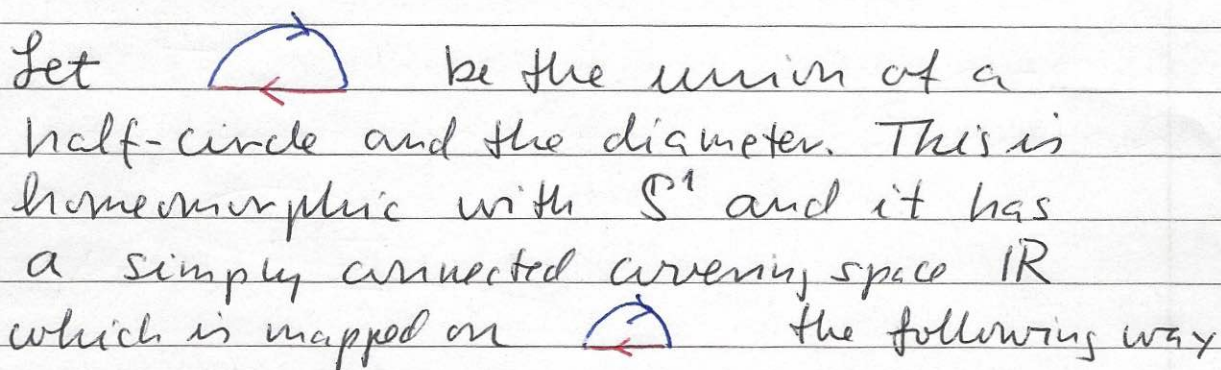 Let be the union of a
half-circle and the diameter. This is
homeomorphic with S¹ and it has
a simply connected covering space ℝ
which is mapped on the following way